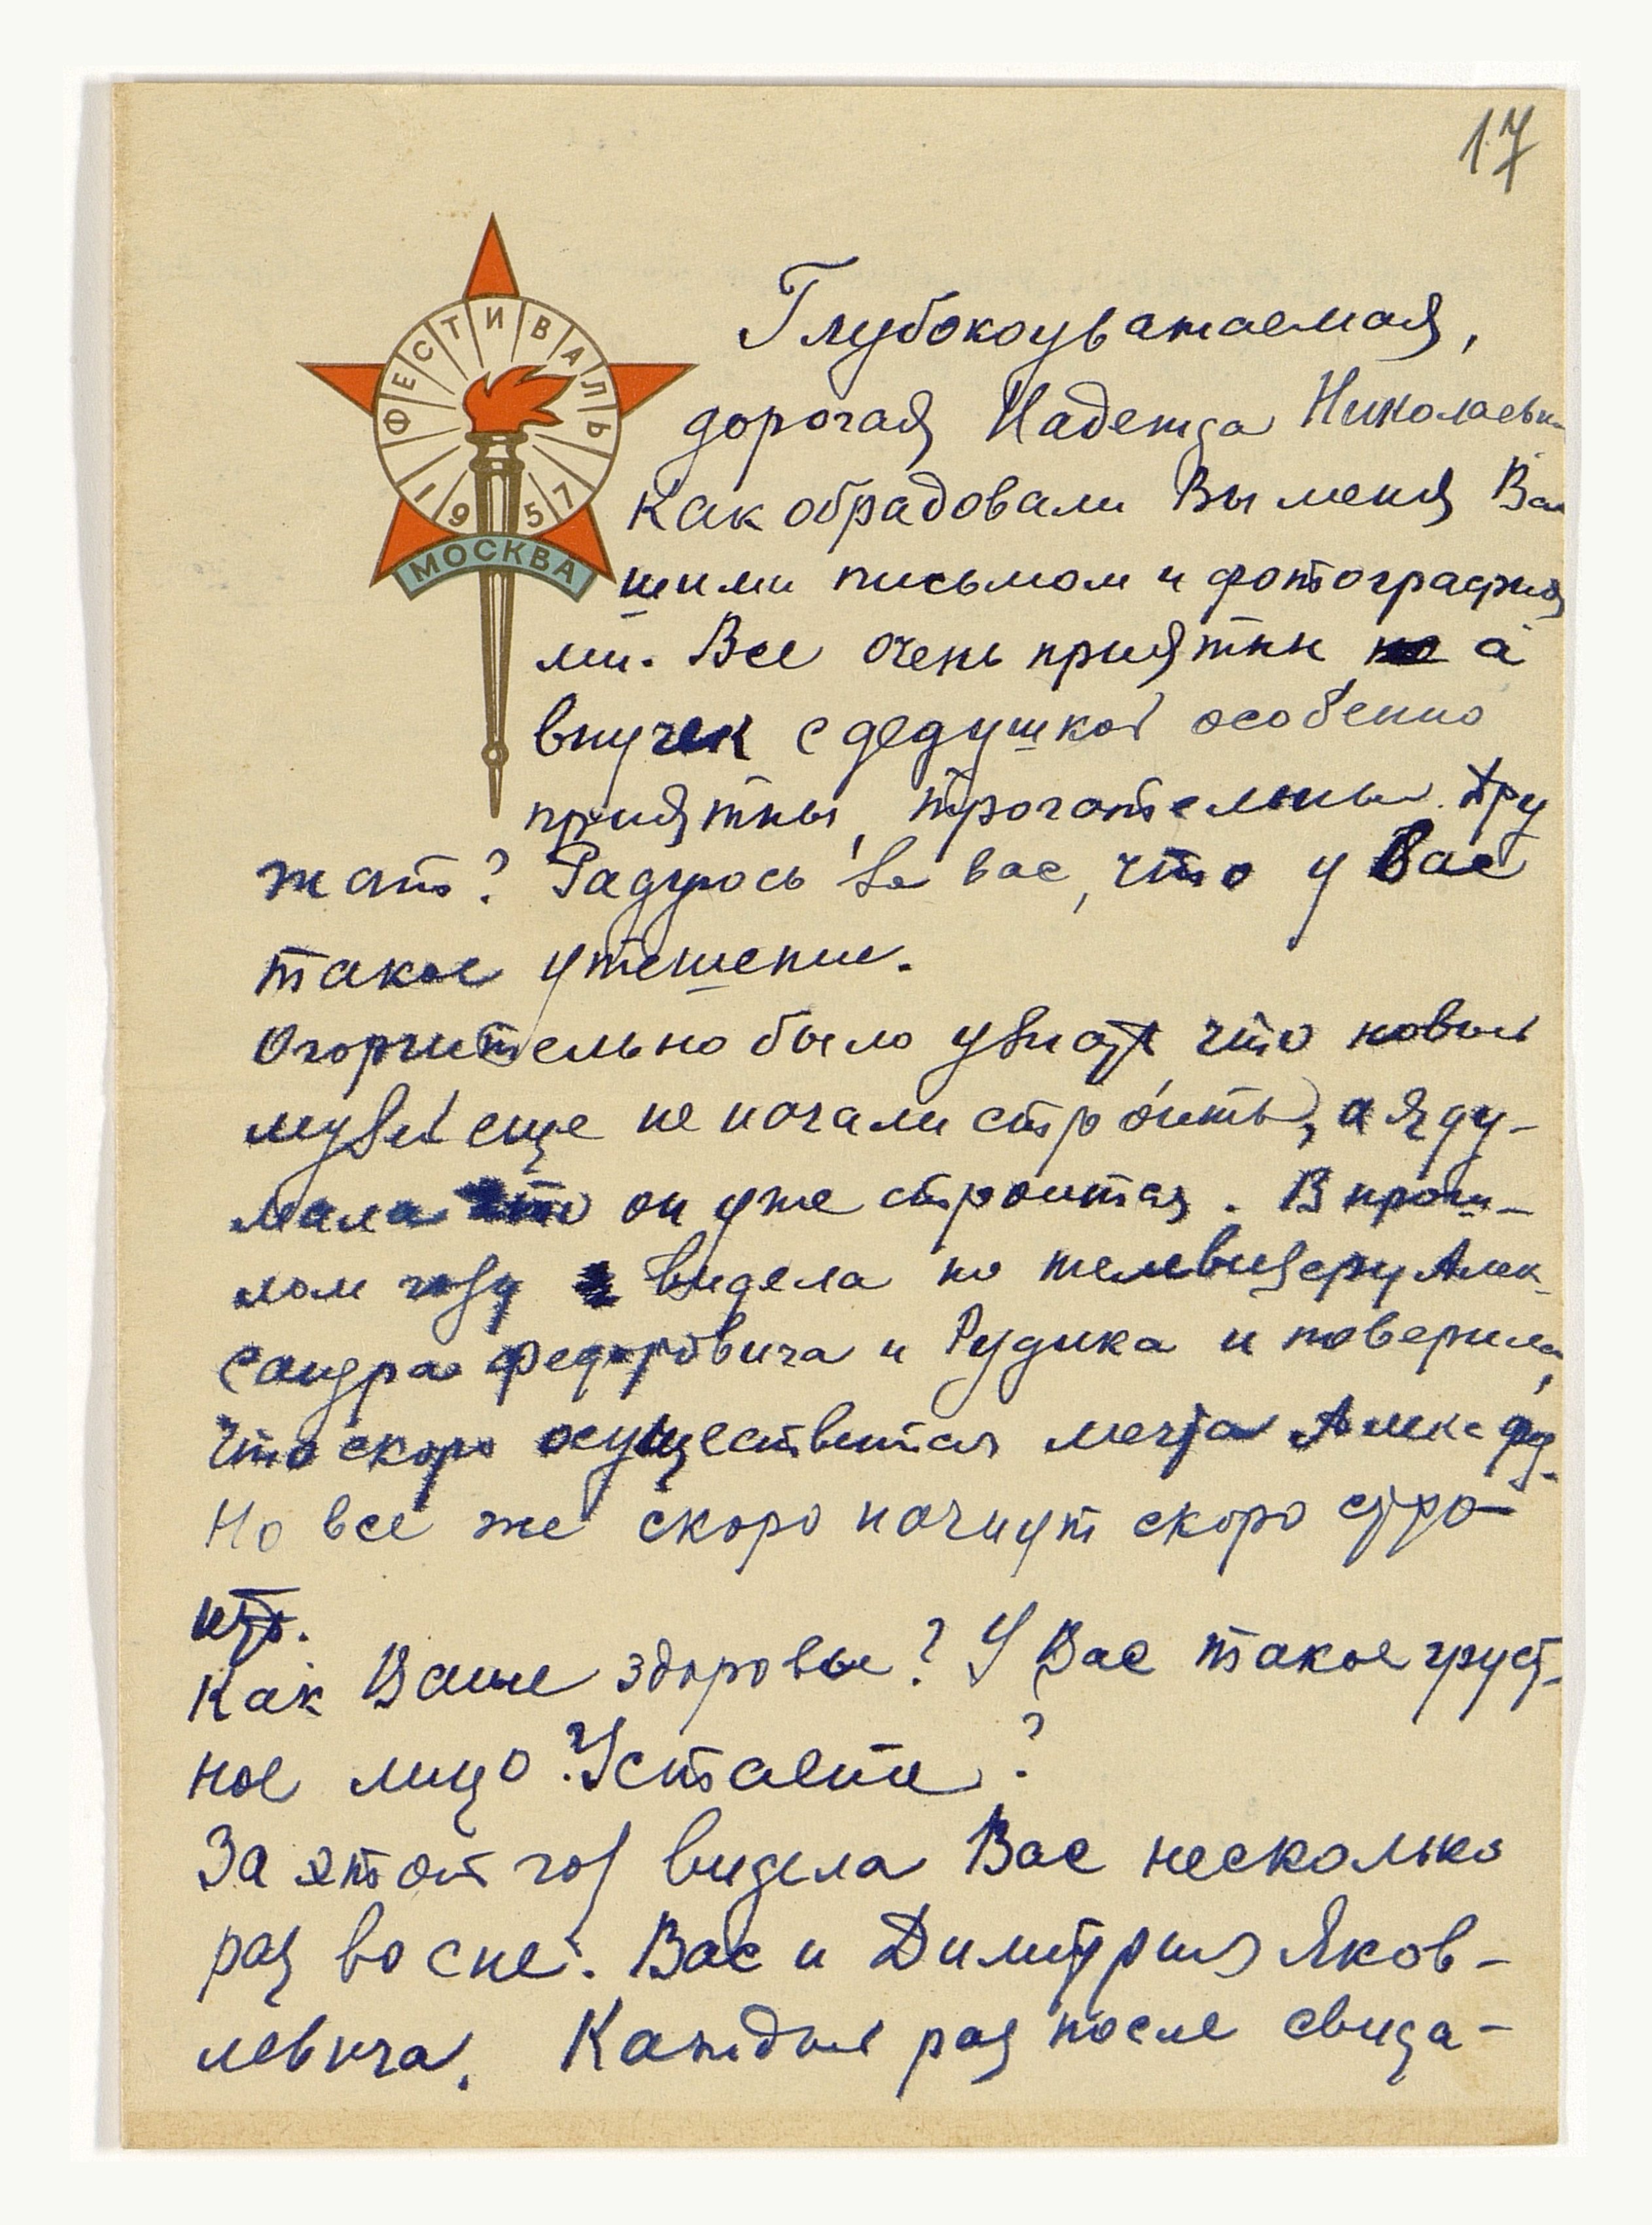 17
ФЕСТИВАЛЬ
1957
МОСКВА
Глубокоуважаемая,
дорогая Надежда Николаевн
Как обрадовали Вы меня Ва
шими письмом и фотография
ми. Все очень приятны а
внучек с дедушкой особенно
приятны, трогательны. Дру
жат? Радуюсь за вас, что у Вас
такое утешение.
Огорчительно было узнать что новый
музей еще не начали строить, а я ду-
мала что он уже строится. В прош-
лом году видела по телевизеру Алек-
сандра Федоровича и Рудика и поверила,
что скоро осуществится мечта Алекс Фед.
Но все же скоро начнут скоро стро-
ить.
Как Ваше здоровье? У Вас такое груст-
ное лицо. Устаете?
За этот год видела Вас несколько
раз во сне. Вас и Димитрия Яков-
левича. Каждый раз после свида-